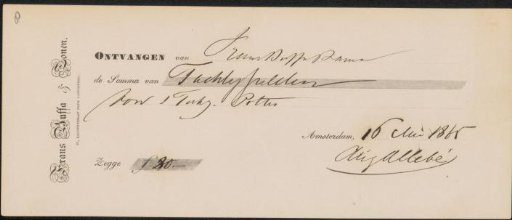 Frans Buffa & Zonen.
ONTVANGEN van Frans Buffa & Zonen
de Somma van Tachtig gulden
voor 1 Teekg.
Amsterdam, 16 1865
Zegge f 80.—
Aug Allebé